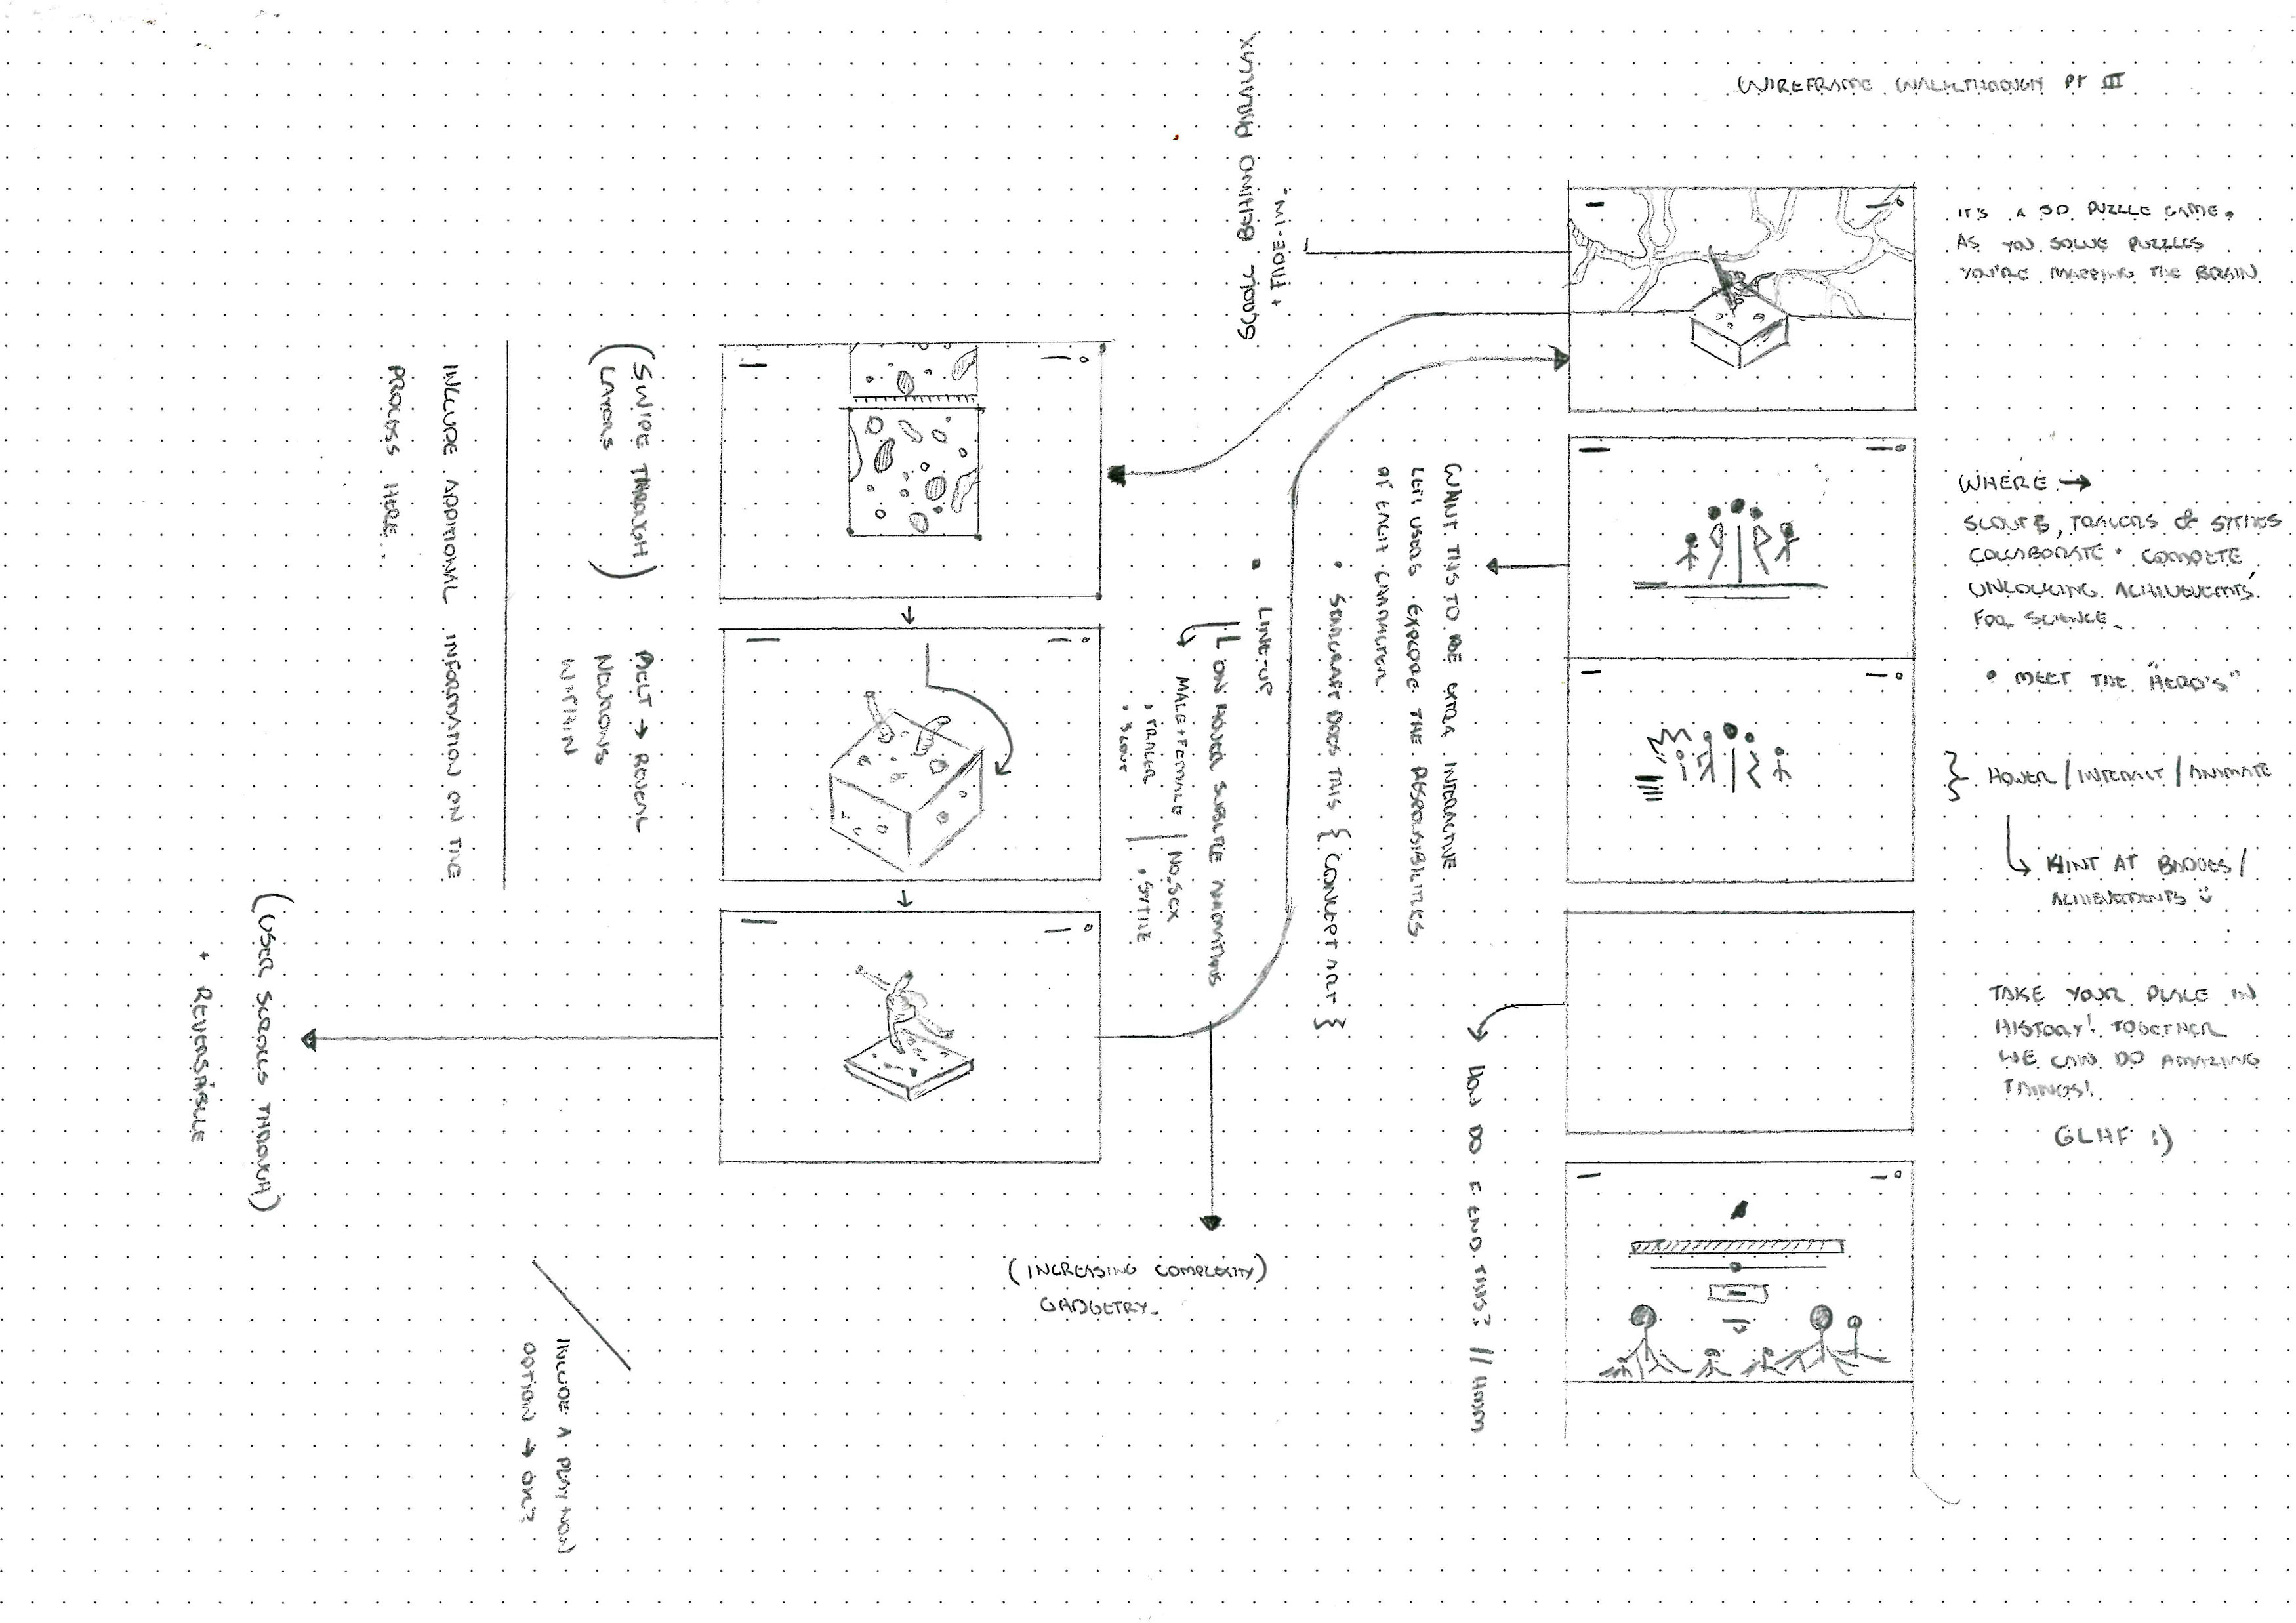 WIREFRAME WALKTHROUGH PT III
IT'S A 3D PUZZLE GAME.
AS YOU SOLVE PUZZLES
YOU'RE MAPPING THE BRAIN
WHERE →
SCOUTS, TRACERS & SYTHES
COLLABORATE + COMPETE
UNLOCKING ACHIEVEMENTS
FOR SCIENCE.
• MEET THE "HERO'S"
} HOVER / INTERACT / ANIMATE
HINT AT BADGES /
ACHIEVEMENTS
TAKE YOUR PLACE IN
HISTORY! TOGETHER
WE CAN DO AMAZING
THINGS!
GLHF :)
SCROLL BEHIND PARALLAX
+ FADE-IN.
WANT THIS TO BE EXTRA INTERACTIVE
LET USERS EXPLORE THE RESPONSIBILITIES
OF EACH CHARACTER.
• STARCRAFT DOES THIS { CONCEPT ART }
• LINE-UP
ON HOVER SUBTLE ANIMATIONS
MALE + FEMALE | NO SEX
• TRACER
• SCOUT
• SYTHE
HOW DO I END THIS? // HMM
(SWIPE THROUGH)
LAYERS
MELT → REVEAL
NEURONS
WITHIN
INCLUDE ADDITIONAL INFORMATION ON THE
PROCESS HERE..
(USER SCROLLS THROUGH)
+ REVERSABLE
(INCREASING COMPLEXITY)
GADGETRY.
INCLUDE A PLAY NOW
OPTION →